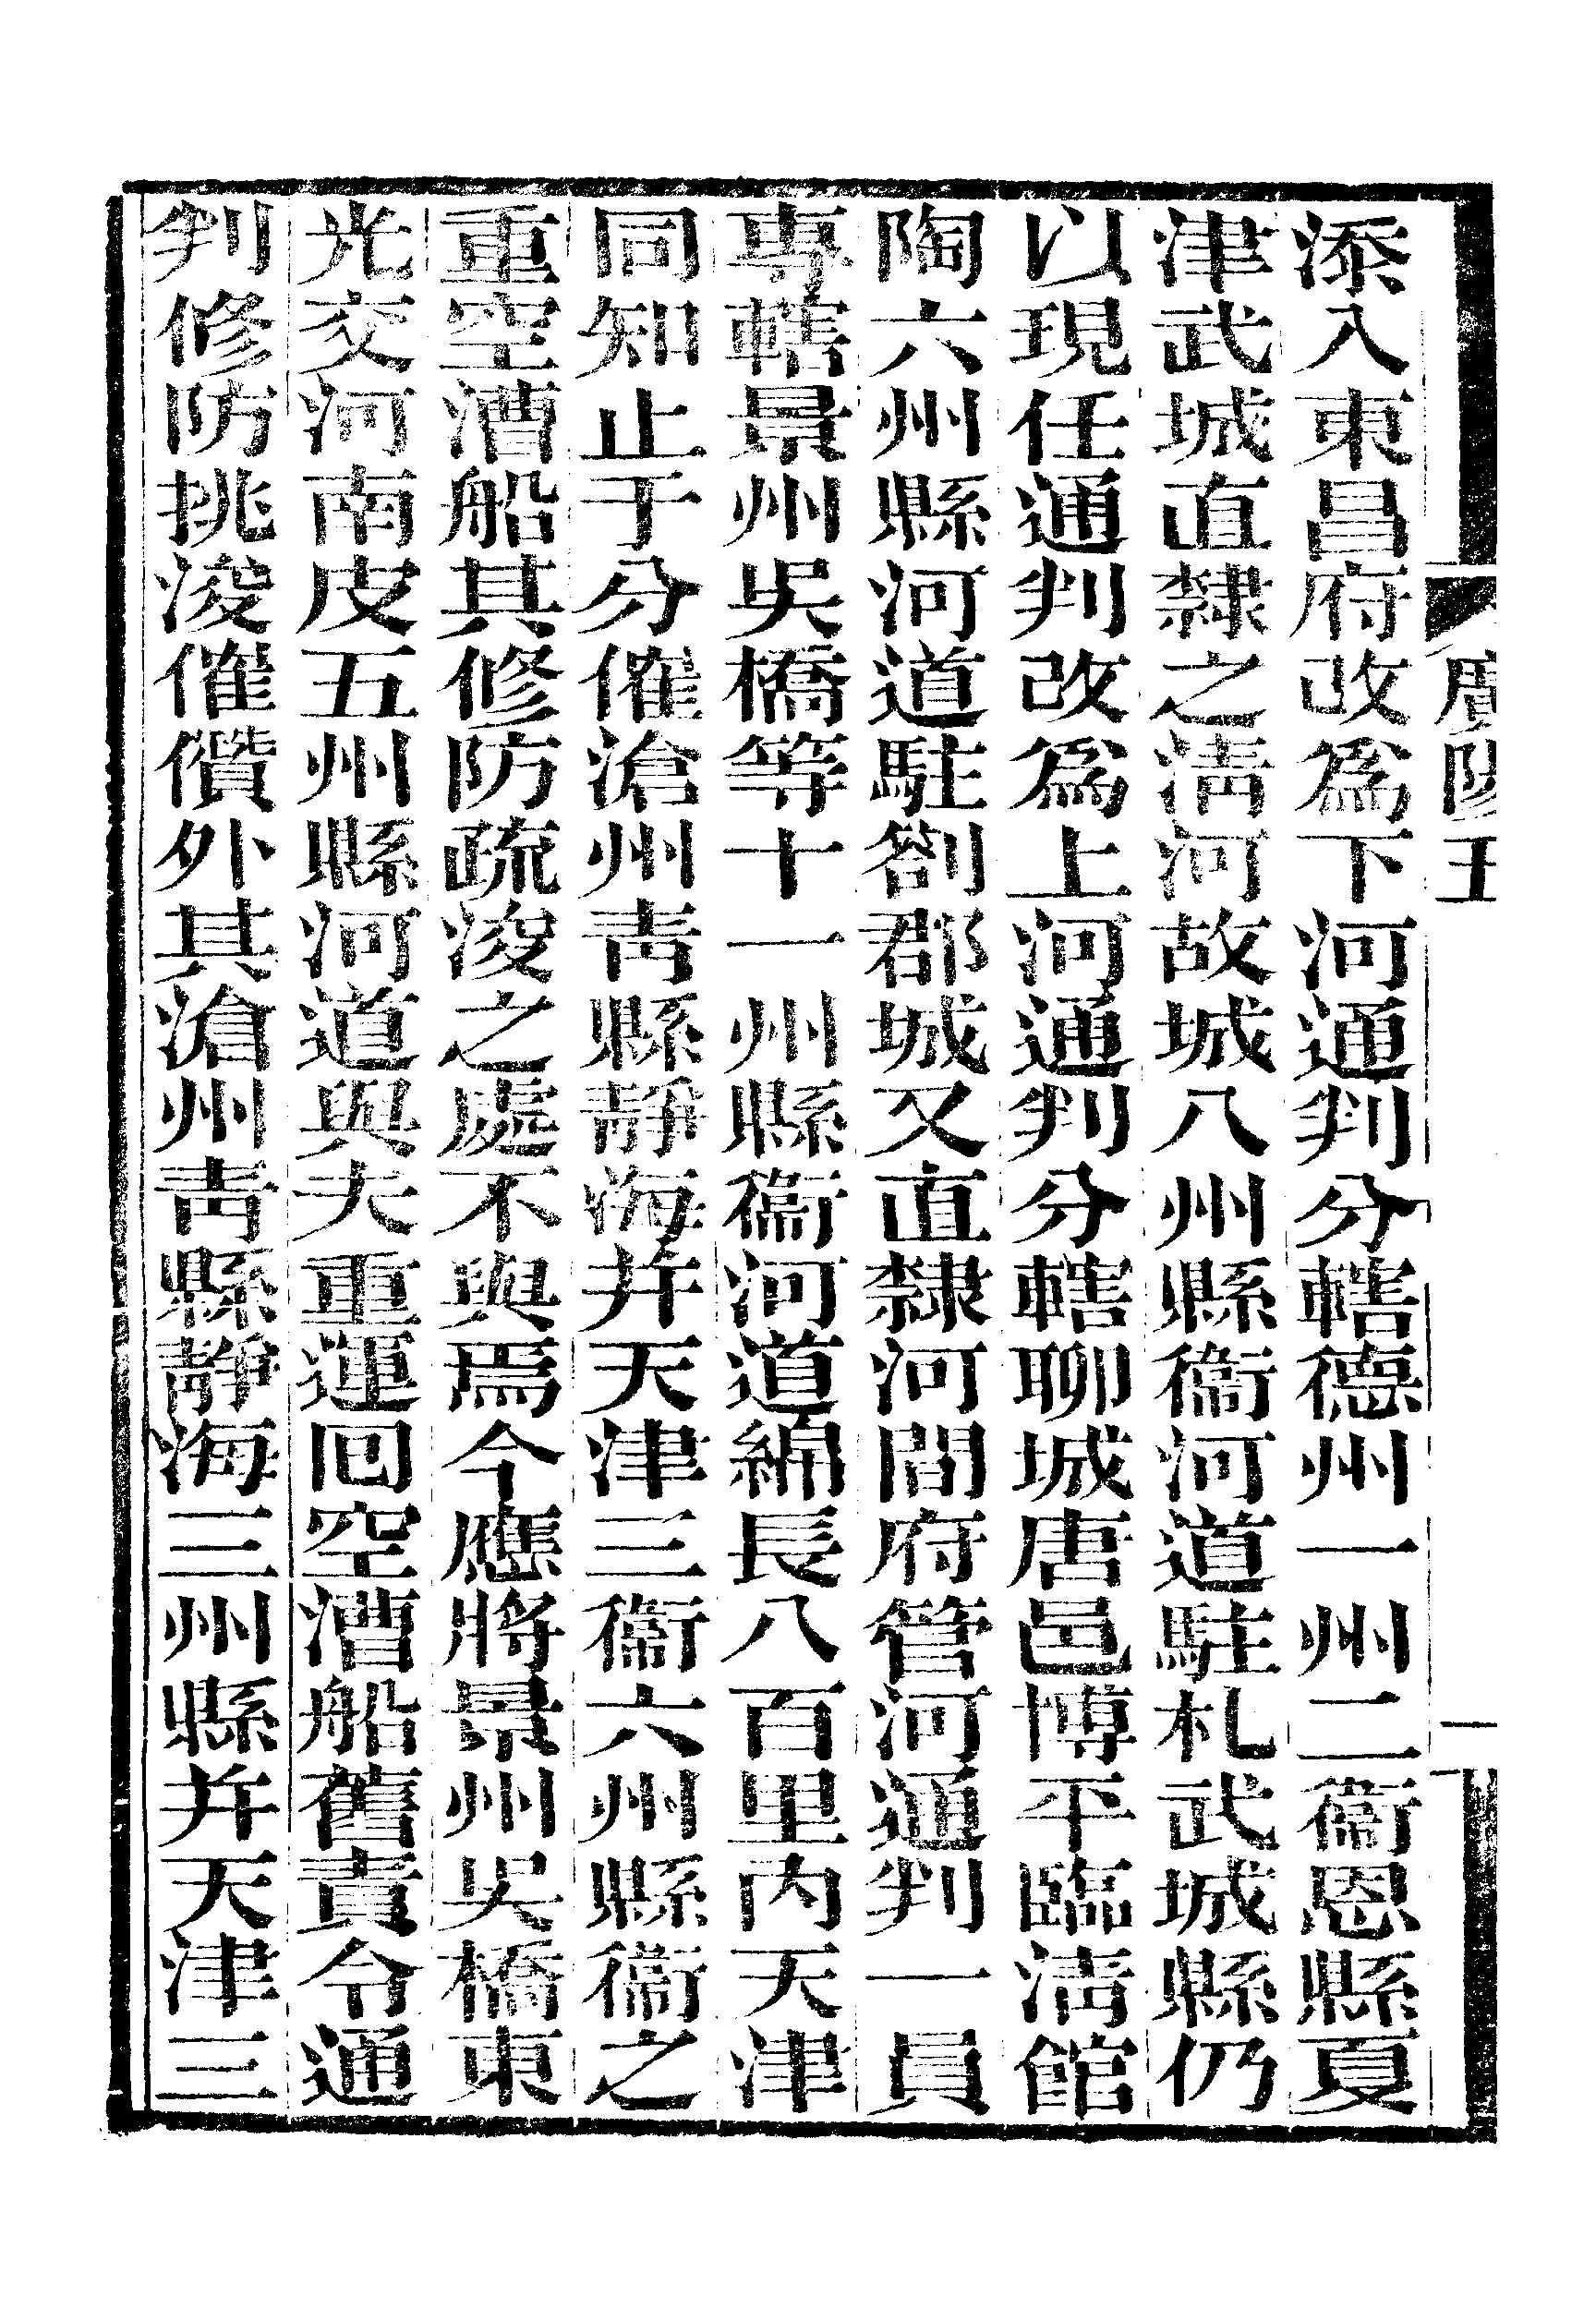 添入東昌府改爲下河通判分轄德州一州二衞恩縣夏
津武城直隸之淸河故城八州縣衞河道駐札武城縣仍
以現任通判改爲上河通判分轄聊城唐邑博平臨淸館
陶六州縣河道駐劄郡城又直隸河間府管河通判一員
專轄景州吳橋等十一州縣衞河道綿長八百里內天津
同知止于分催滄州靑縣靜海幷天津三衞六州縣衞之
重空漕船其修防疏浚之處不與焉今應將景州吳橋東
光交河南皮五州縣河道與夫重運回空漕船舊責令通
判修防挑浚催儹外其滄州靑縣靜海三州縣幷天津三